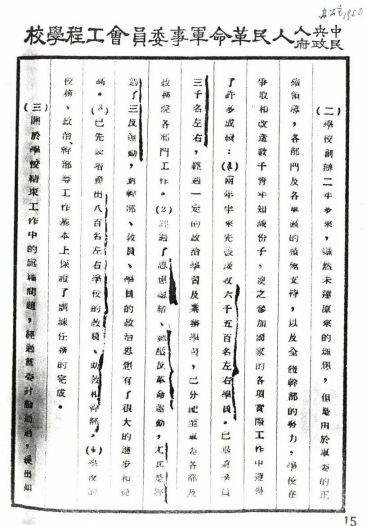 中央人民政府人民革命軍事委員會工程學校
(二)學校創辦二年多來，雖然未達原來的理想，但是由於軍委的正
確領導，各部門及各軍區的積極支持，以及全體幹部的努力，學校在
爭取和改造數千青年知識份子，使之參加國家的各項實際工作中獲得
了許多成績：(1)兩年半來先後接收六千五百名左右學員。已畢業學員
三千名左右，經過一定的政治學習及業務學習，已分配至軍委各部及
政務院各部門工作。(2)經過了思想總結、鎮壓反革命運動，尤其是經
過了三反運動，對幹部、教員、學員的政治思想有了很大的進步和提
高。(3)已先後培養出八百名左右學校的教員、助教和幹部，(4)學校的
校務、政治、幹部等工作基本上保證了訓練任務的完成。
(三)關於學校結束工作中的 問題，經過軍委計劃 ，提出如
15